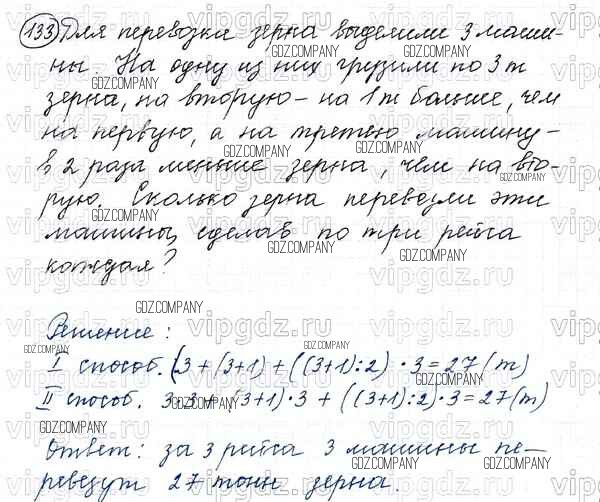 133 Для перевозки зерна выделили 3 маши-
ны. На одну из них грузили по 3 т
зерна, на вторую – на 1 т больше, чем
на первую, а на третью машину –
в 2 раза меньше зерна, чем на вто-
рую. Сколько зерна перевезли эти
машины, сделав по три рейса
каждая?
Решение:
I способ. (3 + (3+1) + ((3+1):2) · 3 = 27 (т)
II способ. 3·3 + (3+1)·3 + ((3+1):2)·3 = 27 (т)
Ответ: за 3 рейса 3 машины пе-
ревезут 27 тонн зерна.
GDZ.COMPANY
vipgdz.ru